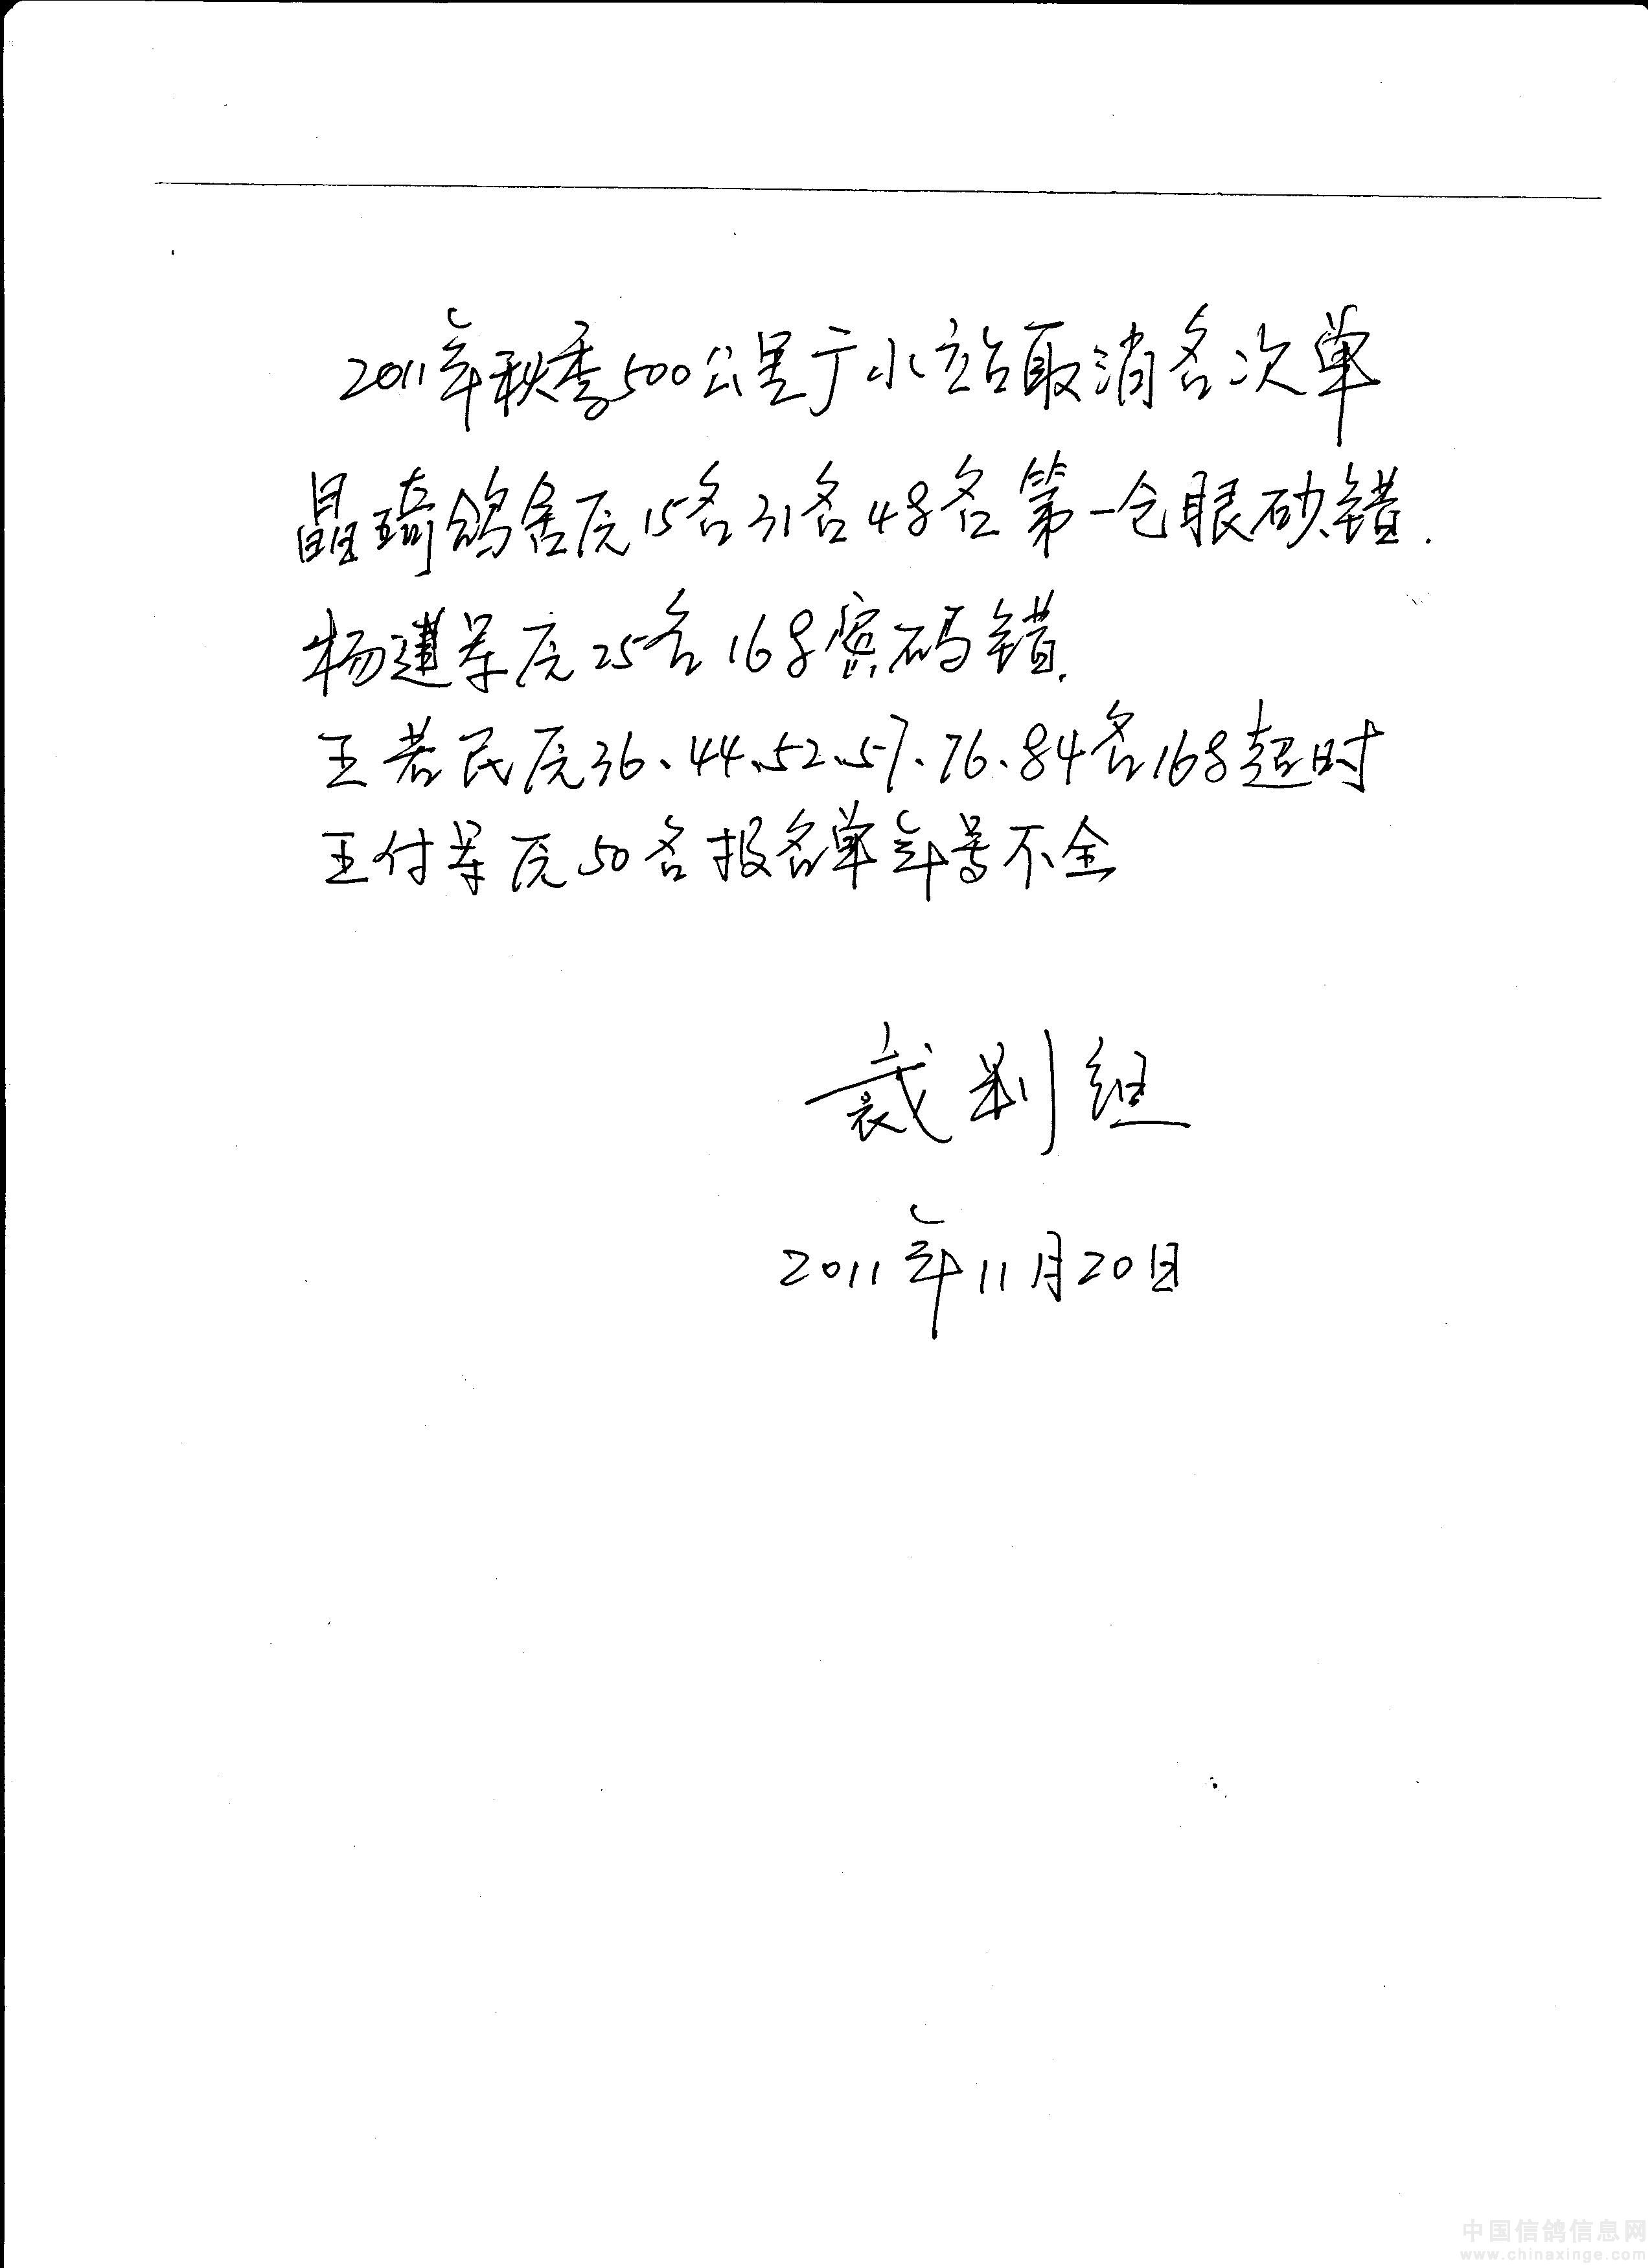 2011年秋季500公里广水站取消名次单
晶琦鸽舍原15名31名48名第一仓眼砂错.
杨建军原25名168密码错.
王若民原36、44、52、57、76、84名168超时
王付军原50名报名单年号不全
裁判组
2011年11月20日
中国信鸽信息网
www.chinaxinge.com